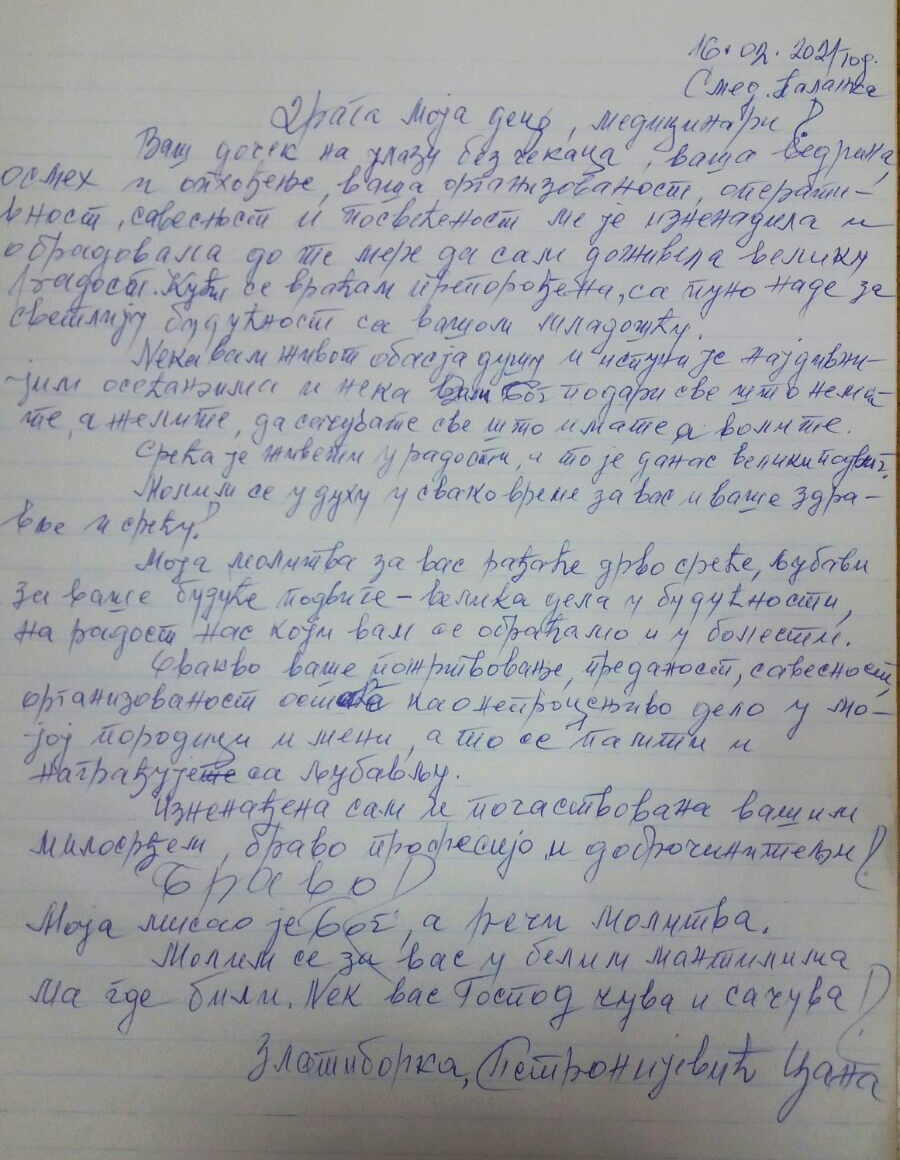 16.02.2021 год.
Смед. Паланка
Драга моја децо, медицинари!
Ваш дочек на улазу без чекања, ваша ведрина,
осмех и опхођење, ваша организованост, операти-
вност, савесност и посвећеност ме је изненадила и
обрадовала до те мере да сам доживела велику
радост. Кући се враћам препорођена, са пуно наде за
светлију будућност са вашом младошћу.
Нека вам живот обасја душу и испуни је најдивни-
јим осећањима и нека вам Бог подари све што нема-
те, а желите, да сачувате све што имате а волите.
Срећа је живети у радости, и то је данас велики подвиг.
Молим се у духу у свако време за вас и ваше здра-
вље и срећу!
Моја молитва за вас рађаће дрво среће, љубави
за ваше будуће подвиге - велика дела у будућности,
на радост нас који вам се обраћамо и у болести.
Овакво ваше пожртвовање, преданост, савесност,
организованост као непроцењиво дело у мо-
јој породици и мени, а то се памти и
награђује са љубављу.
Изненађена сам и почаствована вашим
милосрђем, браво професијо и доброчинитељи!
Браво!
Моја мисао је Бог, а речи молитва.
Молим се за вас у белим мантилима
ма где били. Нек вас Господ чува и сачува!
Златиборка, Петронијевић Цана